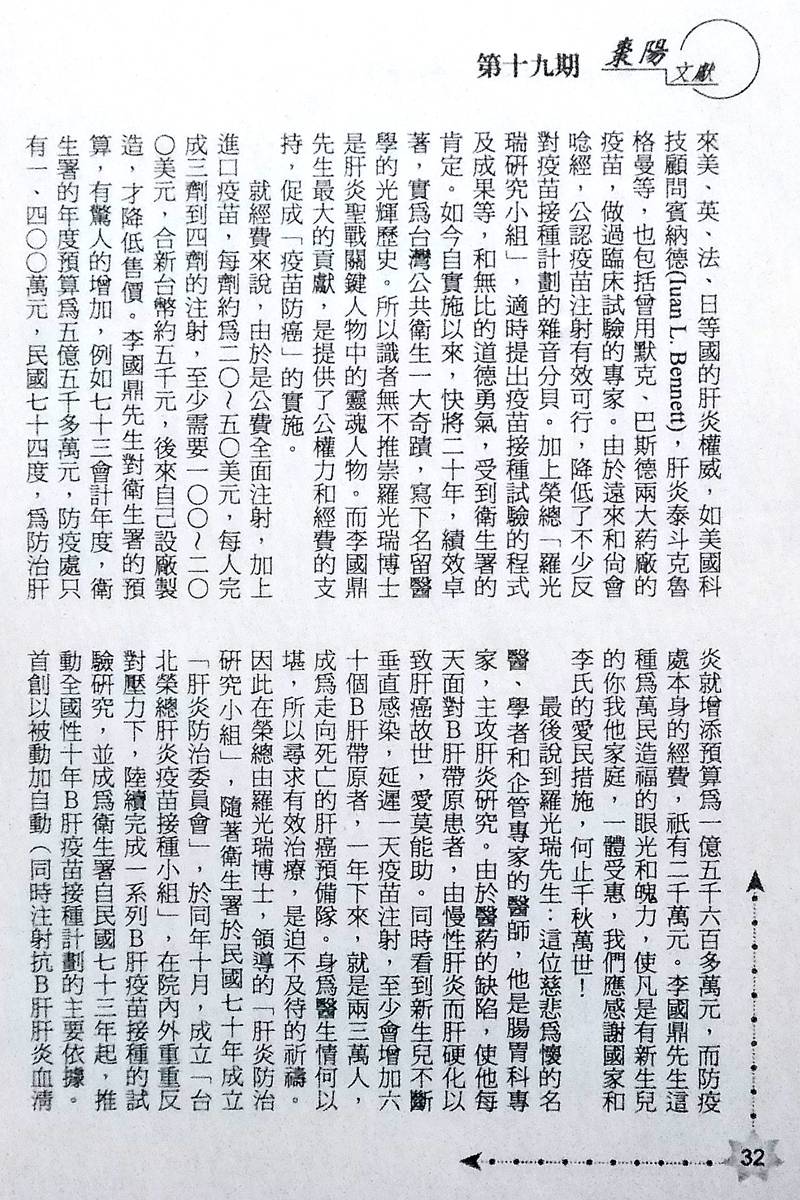 第十九期
棗陽文獻
來美、英、法、日等國的肝炎權威，如美國科
技顧問賓納德(Iuan L. Bennett)，肝炎泰斗克魯
格曼等，也包括曾用默克、巴斯德兩大葯廠的
疫苗，做過臨床試驗的專家。由於遠來和尙會
唸經，公認疫苗注射有效可行，降低了不少反
對疫苗接種計劃的雜音分貝。加上榮總「羅光
瑞硏究小組」，適時提出疫苗接種試驗的程式
及成果等，和無比的道德勇氣，受到衛生署的
肯定。如今自實施以來，快將二十年，績效卓
著，實爲台灣公共衛生一大奇蹟，寫下名留醫
學的光輝歷史。所以識者無不推崇羅光瑞博士
是肝炎聖戰關鍵人物中的靈魂人物。而李國鼎
先生最大的貢獻，是提供了公權力和經費的支
持，促成「疫苗防癌」的實施。
就經費來說，由於是公費全面注射，加上
進口疫苗，每劑約爲二〇～五〇美元，每人完
成三劑到四劑的注射，至少需要一〇〇～二〇
〇美元，合新台幣約五千元，後來自己設廠製
造，才降低售價。李國鼎先生對衛生署的預
算，有驚人的增加，例如七十三會計年度，衛
生署的年度預算爲五億五千多萬元，防疫處只
有一、四〇〇萬元，民國七十四度，爲防治肝
炎就增添預算爲一億五千六百多萬元，而防疫
處本身的經費，祇有二千萬元。李國鼎先生這
種爲萬民造福的眼光和魄力，使凡是有新生兒
的你我他家庭，一體受惠，我們應感謝國家和
李氏的愛民措施，何止千秋萬世！
最後說到羅光瑞先生：這位慈悲爲懷的名
醫、學者和企管專家的醫師，他是腸胃科專
家，主攻肝炎硏究。由於醫葯的缺陷，使他每
天面對B肝帶原患者，由慢性肝炎而肝硬化以
致肝癌故世，愛莫能助。同時看到新生兒不斷
垂直感染，延遲一天疫苗注射，至少會增加六
十個B肝帶原者，一年下來，就是兩三萬人，
成爲走向死亡的肝癌預備隊。身爲醫生情何以
堪，所以尋求有效治療，是迫不及待的祈禱。
因此在榮總由羅光瑞博士，領導的「肝炎防治
硏究小組」，隨著衛生署於民國七十年成立
「肝炎防治委員會」，於同年十月，成立「台
北榮總肝炎疫苗接種小組」，在院內外重重反
對壓力下，陸續完成一系列B肝疫苗接種的試
驗硏究，並成爲衛生署自民國七十三年起，推
動全國性十年B肝疫苗接種計劃的主要依據。
首創以被動加自動（同時注射抗B肝肝炎血淸
32